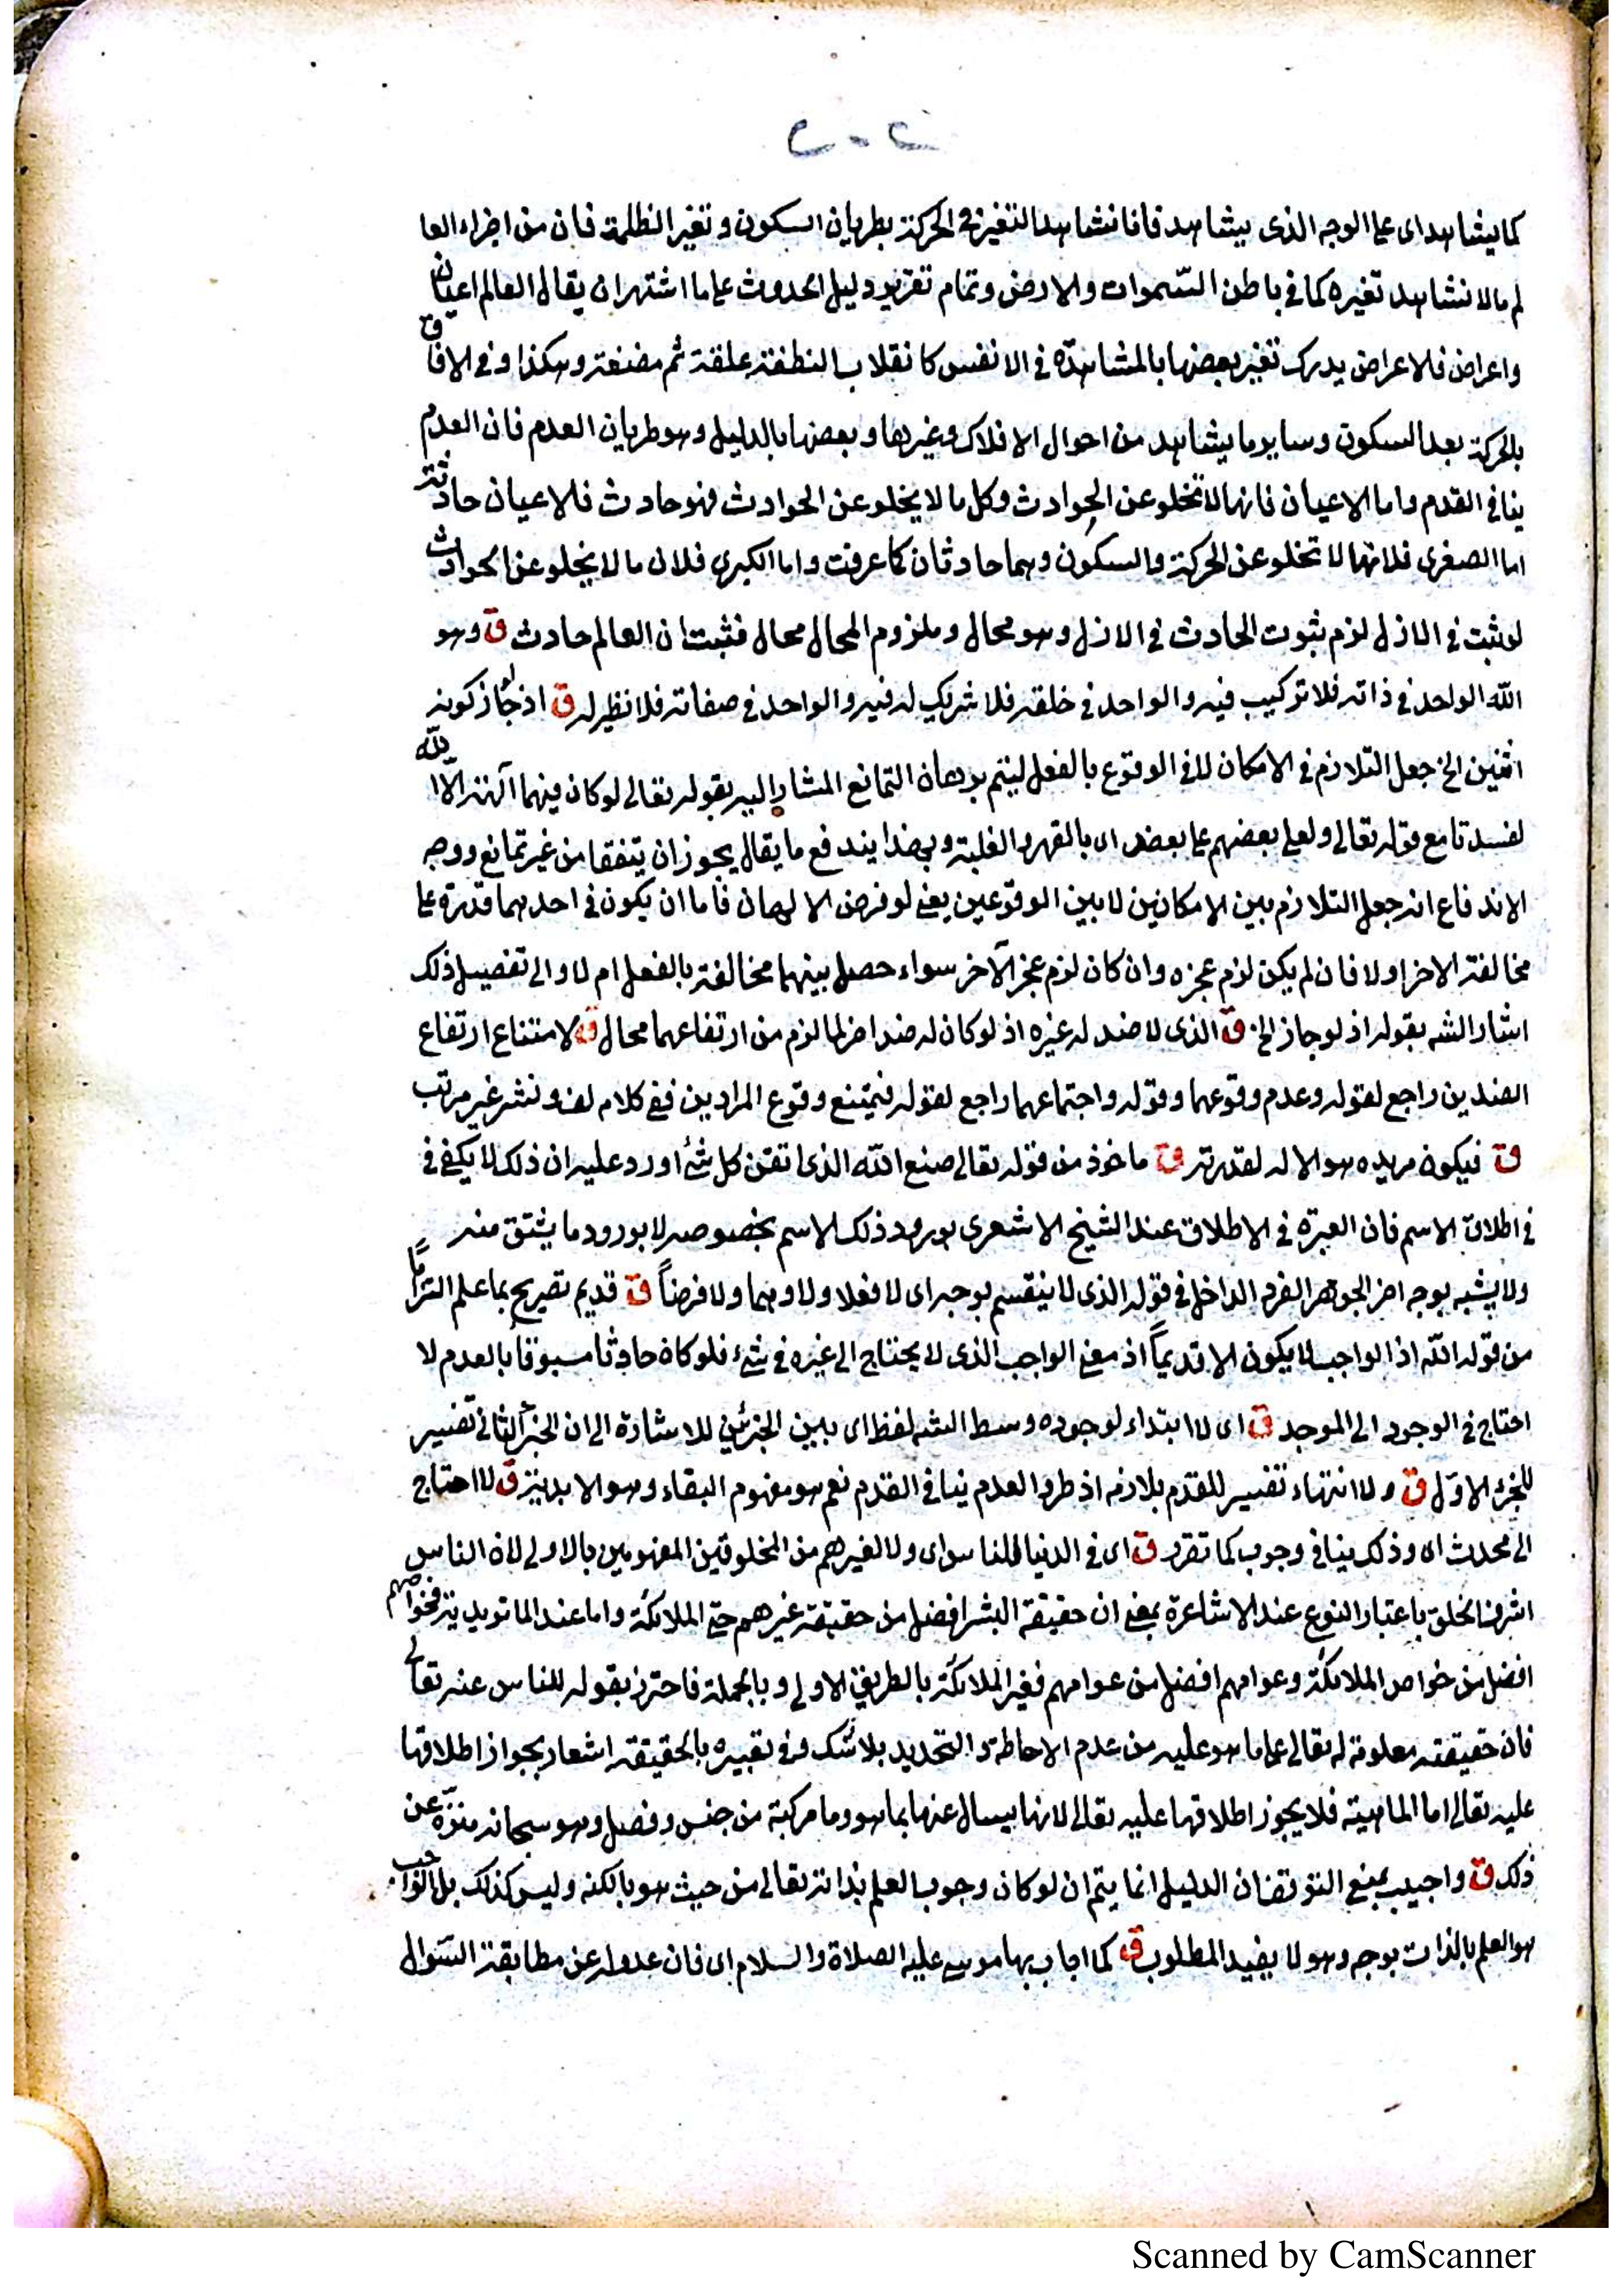 ٢٠٤
كما يشاهد اى على الوجه الذى يشاهد فانا نشاهد التغير فى الحركة بطريان السكون وتغير الظلمة فان من اجزاء العا
لم مالا نشاهد تغيره كما فى باطن السموات والارض وتمام تقرير دليل الحدوث على ما اشتهر ان يقال العالم اعيان
واعراض فالاعراض يدرك تغير بعضها بالمشاهدة فى الانفس كانقلاب النطفة علقة ثم مضغة وهكذا وفى الافاق
بالحركة بعد السكون وساير ما يشاهد من احوال الافلاك وغيرها وبعضها بالدليل وهو طريان العدم فان العدم
ينافى القدم واما الاعيان فانها لا تخلو عن الحوادث وكل ما لا يخلو عن الحوادث فهو حادث فالاعيان حادثة
اما الصغرى فلانها لا تخلو عن الحركة والسكون وهما حادثان كما عرفت واما الكبرى فلان ما لا يخلو عن الحوادث
لو ثبت فى الازل لزم ثبوت الحادث فى الازل وهو محال وملزوم المحال محال فثبت ان العالم حادث ق وهو
الله الواحد فى ذاته فلا تركيب فيه والواحد فى خلقه فلا شريك له فيه والواحد فى صفاته فلا نظير له ق اذ لو جاز كونه
اثنين الخ جعل التلازم فى الامكان لا فى الوقوع بالفعل ليتم برهان التمانع المشار اليه بقوله تعالى لو كان فيهما آلهة الا الله
لفسدتا مع قوله تعالى ولعلى بعضهم على بعض اى بالقهر والغلبة وبهذا يندفع ما يقال يجوز ان يتفقا من غير تمانع ووجه
الاندفاع انه جعل التلازم بين الامكانين لا بين الوقوعين يعنى لو فرض الالهان فاما ان يكون فى احدهما قدرة على
مخالفة الاخر اولا فان لم يكن لزم عجزه وان كان لزم عجز الآخر سواء حصل بينهما مخالفة بالفعل ام لا والى تفصيل ذلك
اشار الشه بقوله اذ لو جاز الخ ق الذى لا ضد له غيره اذ لو كان له ضد اخر لما لزم من ارتفاعهما محال ق لامتناع ارتفاع
الضدين راجع لقوله وعدم وقوعهما وقوله واجتماعهما راجع لقوله فيمتنع وقوع المرادين ففى كلام لف ونشر غير مرتب
ق فيكون مريده هو الاله لقدرته ق ماخوذ من قوله تعالى صنع الله الذى اتقن كل شئ اورد عليه ان ذلك لا يكفى فى
فى اطلاق الاسم فان العبرة فى الاطلاق عند الشيخ الاشعرى بورود ذلك الاسم بخصوصه لا بورود ما يشتق منه
ولا يشبه بوجه اخر الجوهر الفرد الداخل فى قوله الذى لا ينقسم بوجه اى لا فعلا ولا وهما ولا فرضاً ق قديم تصريح بما علم التزاماً
من قوله الله اذ الواجب لا يكون الا قديماً اذ معنى الواجب الذى لا يحتاج الى غيره فى شئ فلو كان حادثا مسبوقا بالعدم لا
احتاج فى الوجود الى الموجد ق اى لا ابتداء لوجوده وسط الشه لفظ اى بين الجزئين للاشارة الى ان الجزء الثانى تفسير
للجزء الاول ق ولا انتهاء تفسير للقدم بلازمه اذ طرو العدم ينافى القدم نعم هو مفهوم البقاء وهو الابدية ق لا احتاج
الى محدث اى وذلك ينافى وجوب كما تقرر ق اى فى الدنيا للناس اى ولا لغيرهم من المخلوقين المفهومين بالاولى لان الناس
اشرف الخلق باعتبار النوع عند الاشاعرة بمعنى ان حقيقة البشر افضل من حقيقة غيرهم حتى الملائكة واما عند الماتريدية فخواصهم
افضل من خواص الملائكة وعوامهم افضل من عوامهم فغير الملائكة بالطريق الاولى وبالجملة فاحترز بقوله للناس عنه تعالى
فان حقيقته معلومة له تعالى على ما هو عليه من عدم الاحاطة والتحديد بلا شك وفى تعبيره بالحقيقة اشعار بجواز اطلاقها
عليه تعالى اما الماهية فلا يجوز اطلاقها عليه تعالى لانها يسال عنها بما هو وما مركبة من جنس وفصل وهو سبحانه منزه عن
ذلك ق واجيب بمنع التوقف فان الدليل انما يتم ان لو كان وجوب العلم بذاته تعالى من حيث هو بالكنه وليس كذلك بل الواجب
هو العلم بالذات بوجه وهو لا يفيد المطلوب ق كما اجاب بها موسى عليه الصلاة والسلام اى فان عدوله عن مطابقة السوال
Scanned by CamScanner